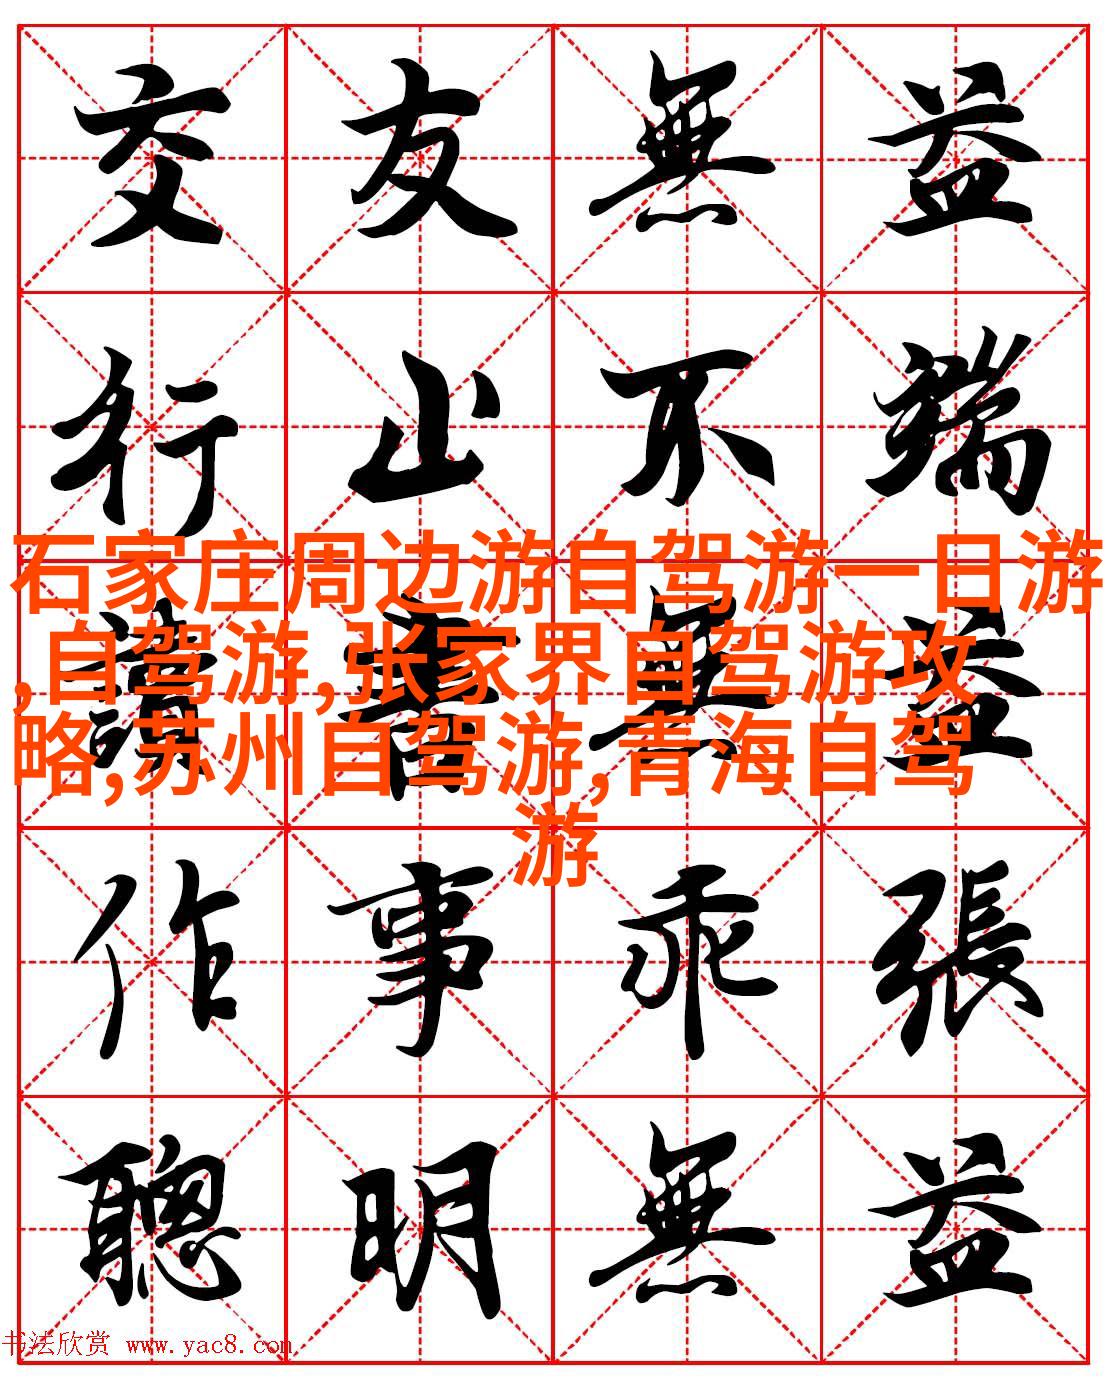 交友無益
行止不端
石家庄周边游自驾游一日游
,自驾游,张家界自驾游攻
略,苏州自驾游,青海自驾
游
讀書無益
作事乖張
聰明無益
书法欣赏 www.yac8.com